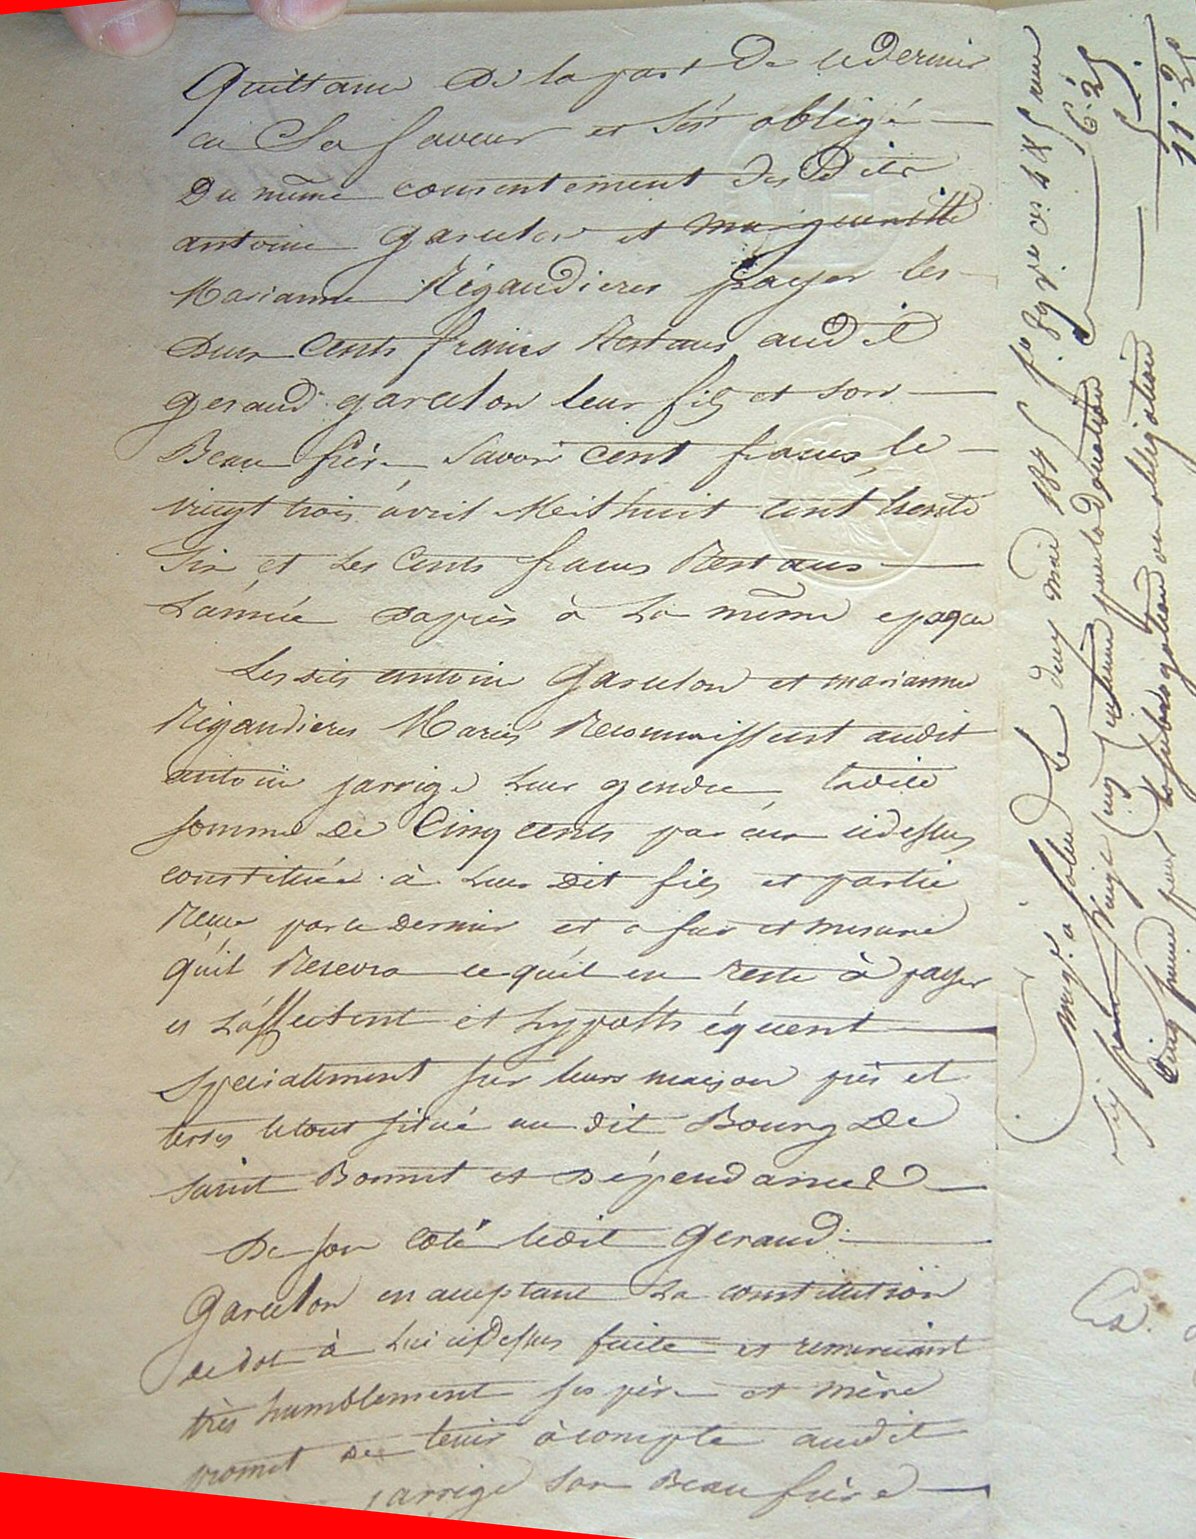 Quittance de la part de ce dernier
en Sa faveur et s'est obligé
Du même consentement des dits
antoine garcelon et margueritte
Marianne Régaudieres payer les
Deux Cents francs Restans audit
geraud garcelon leur fils et son
Beau frère Savoir cent francs, le
vingt trois avril Mil huit cent trente
Six et les Cents francs Restans
L'année d'après à La même epoque
Les dits antoine Garcelon et marianne
Régaudieres Mariés Reconnaissent audit
antoine jarrige Leur gendre, Ladite
somme de Cinq cents par eux cidessus
constituée à Leur dit fils et partie
Reçue par ce dernier et a fur et mesure
qu'il Recevra ce qu'il en reste à payer
et L'affectent et hypothèquent
Specialement sur leurs maison près et
terres le tout situé au dit Bourg De
Saint Bonnet et Dépendances
De son coté ledit geraud
Garcelon en acceptant La constitution
de dot à Lui cidessus faite et remerciant
très humblement ses père et mère
promet de tenir à compte audit
jarrige son Beau frère
le deux mai 184
cinq centimes pour la donation
Cinq francs pour la subrogation ou obligation
6. 25
5.
11. 25